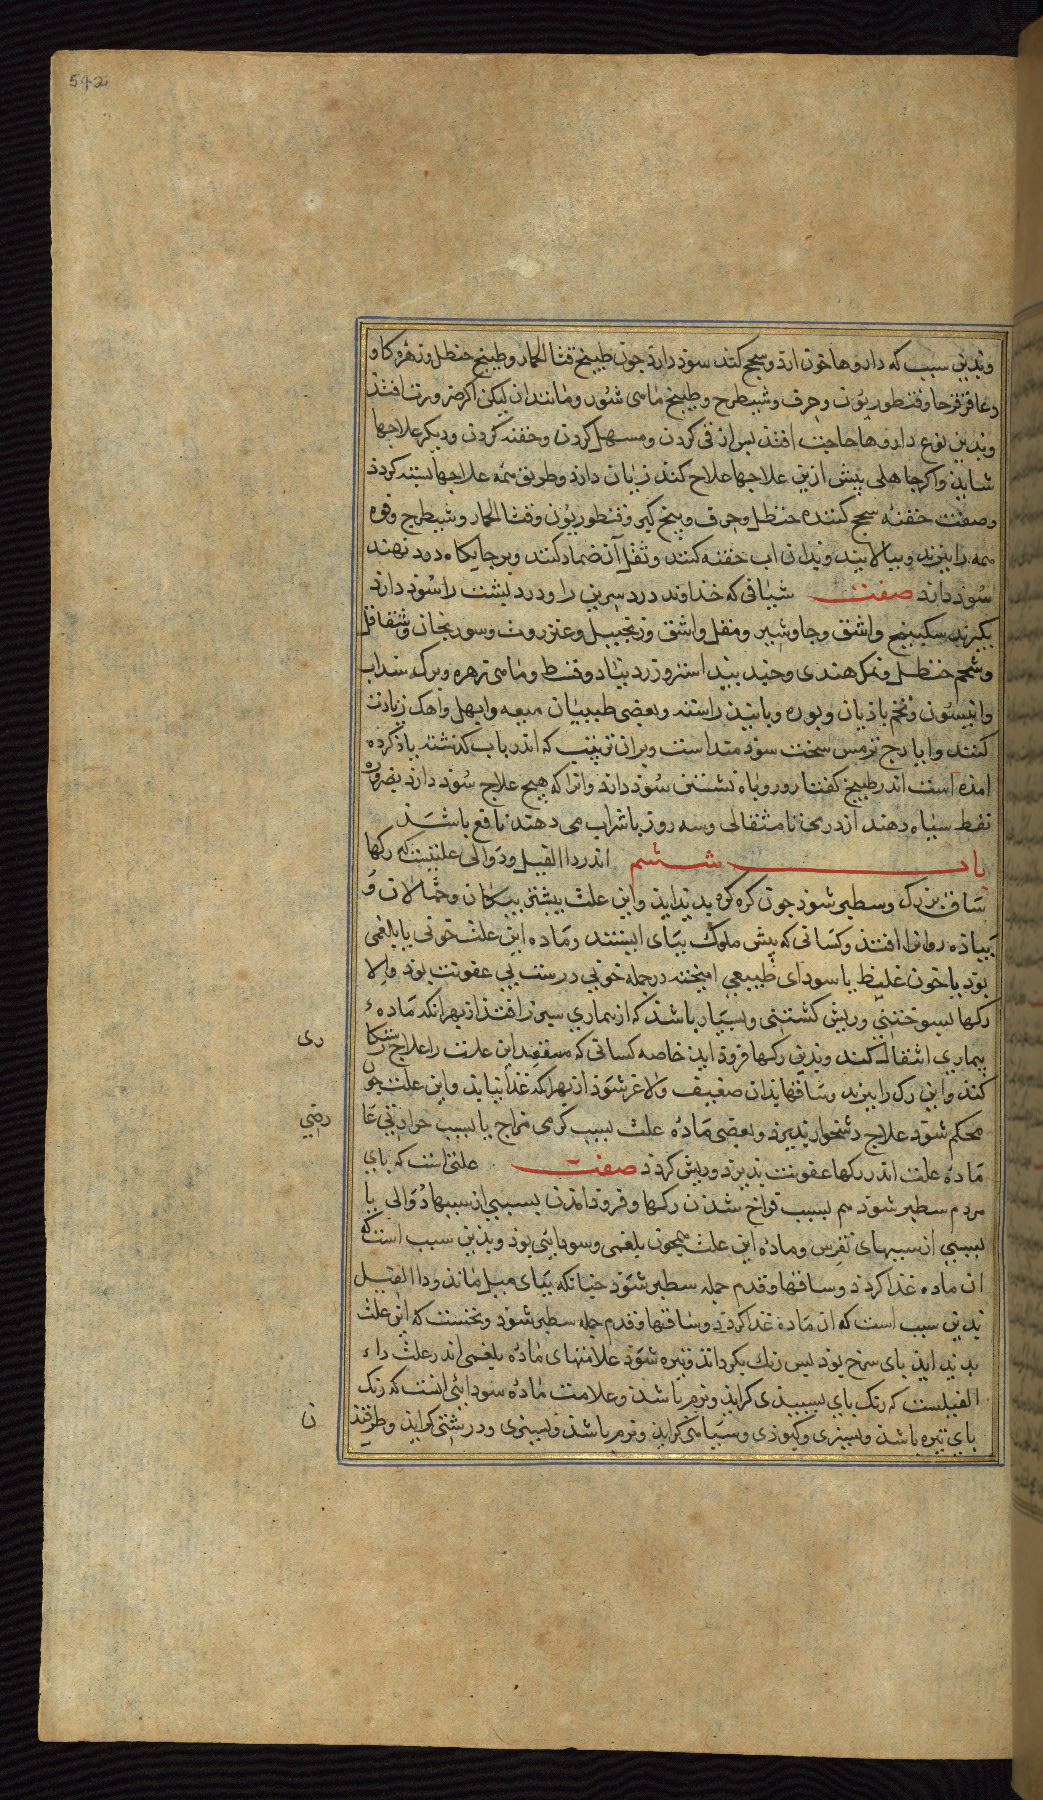 542
وبدین سبب که داروها خون ارد وسحج کند سود دارد جون طبیخ قثا الحمار وطبیخ حنظل وزهره کاو
وعاقرقرحا وقنطوریون وحرف وشیطرج وطبیخ ماهی شور ومانند ان لیکن اکر ضرورت افتذ
وبدین نوع داروها حاجت افتذ بس از قی کردن ومسهل کردن وحقنه کردن ودیکر علاجها
شاید واکر جاهلی پیش ازین علاجها علاج کند زیان دارد وطریق همه علاجها بسته کردد
وصفت حقنه سحج کننده حنظل وحرف وبیخ کبر وقنطوریون وقثا الحمار وشیطرج وفوه
همه را بپزند وببالایند وبدان اب حقنه کنند وثفل آن ضماد کنند وبر جایکاه درد نهند
سود دارد صفت شیافی که خداوند درد سرین را ودرد بشت را سود دارد
بکیرند سکبینج واشق وجاوشیر ومقل واشق وزنجبیل وعنزروت وسورنجان وشقاقل
وشحم حنظل ونمک هندی وجند بیداستر وزرنباد وقسط وماهی زهره وبرک سداب
وانیسون وتخم باذیان وبوره وبابیذ راسته وبعضی طبیبان میعه وابهل واهک زیادت
کنند وایارج هرمس سخت سودمند است وبران ترتیب که اندر باب کذشته یاذ کرده
امده است اندر طبیخ کفتار وروباه نشستن سود دارد وانرا که هیچ علاج سود دارد بضرورة
نفط سیاه دهند از درمی تا مثقالی وسه روز با شراب می دهند نافع باشد
باب ششم اندر دا الفیل ودوالی علتیست که رکها
ساق بزرک وسطبر شود جون کره کره بدید اید واین علت بیشتر بیکان وحمالان و
پیاده روانرا افتذ وکسانی که پیش ملوک بپای ایستند وماده این علت خونی یا بلغمی
بود یا خون غلیظ یا سودای طبیعی امیخته در جمله خونی درست بی عفونت بود والا
رکها بسوختنی وریش کشتنی وبسیار باشد که از بیماری سپرز افتذ از بهر انکه ماده
بیماری انتقال کند وبدین رکها فروذ اید خاصه کسانی که این علت را علاج
کند واین رک را ببرند وساقها بذان ضعیف ولاغر شود از بهر انکه غذا نیابد واین علت جون
محکم شود علاج دشخوار بذیرد وبعضی ماده علت بسبب کرمی مزاج یا بسبب حرارتی
ماده علت اندر رکها عفونت بذیرد وریش کردد صفت علتی است که بای
مردم سطبر شود هم بسبب فراخ شدن رکها وفروذ امدن بسببی از سببها دوالی یا
بسببی از سببهای نقرس وماده این علت همچون بلغمی وسودایی بود وبدین سبب است که
ان ماده غذا کردد وساقها وقدم جمله سطبر شود جنانکه بپای میل ماند ودا الفیل
بدین سبب است که ان ماده غذا کردد وساقها وقدم جمله سطبر شود ونخست که این علت
بدید اید بای سرخ بود بس رنک بکرداند وتیره شود علامتهای ماده بلغمی اندر علت داء
الفیلست که رنک بای بسبیذی کراید ونرم باشد وعلامت ماده سودایی انست که رنک
بای تیره باشد وبسبزی وکبوذی وسیاهی کراید ونرم باشد وبسبزی ودرشتی کراید وطرقند